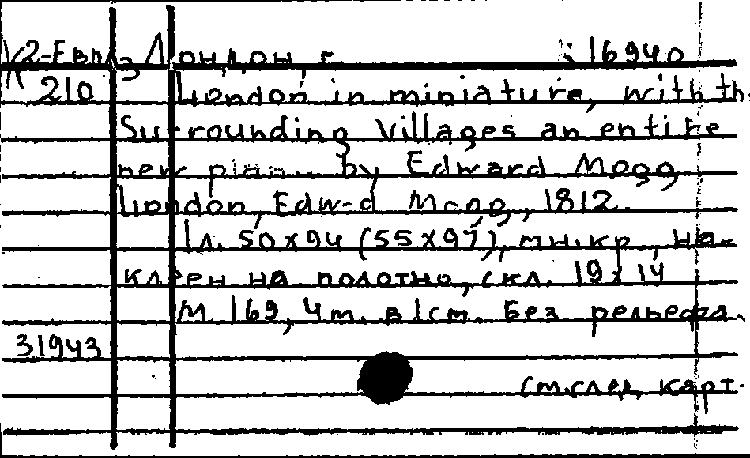 К2-Евр Лондон, г. 16940
210 London in miniature, with th
Surrounding Villages an entire
new plan.. by Edward Mogg
London, Edw-d Mogg, 1812.
1л. 50х94 (55х97), мн.кр., на-
клеен на полотно, скл. 19х14
М 169, 4м. в 1см. Без рельефа.
31943
См.след. карт.